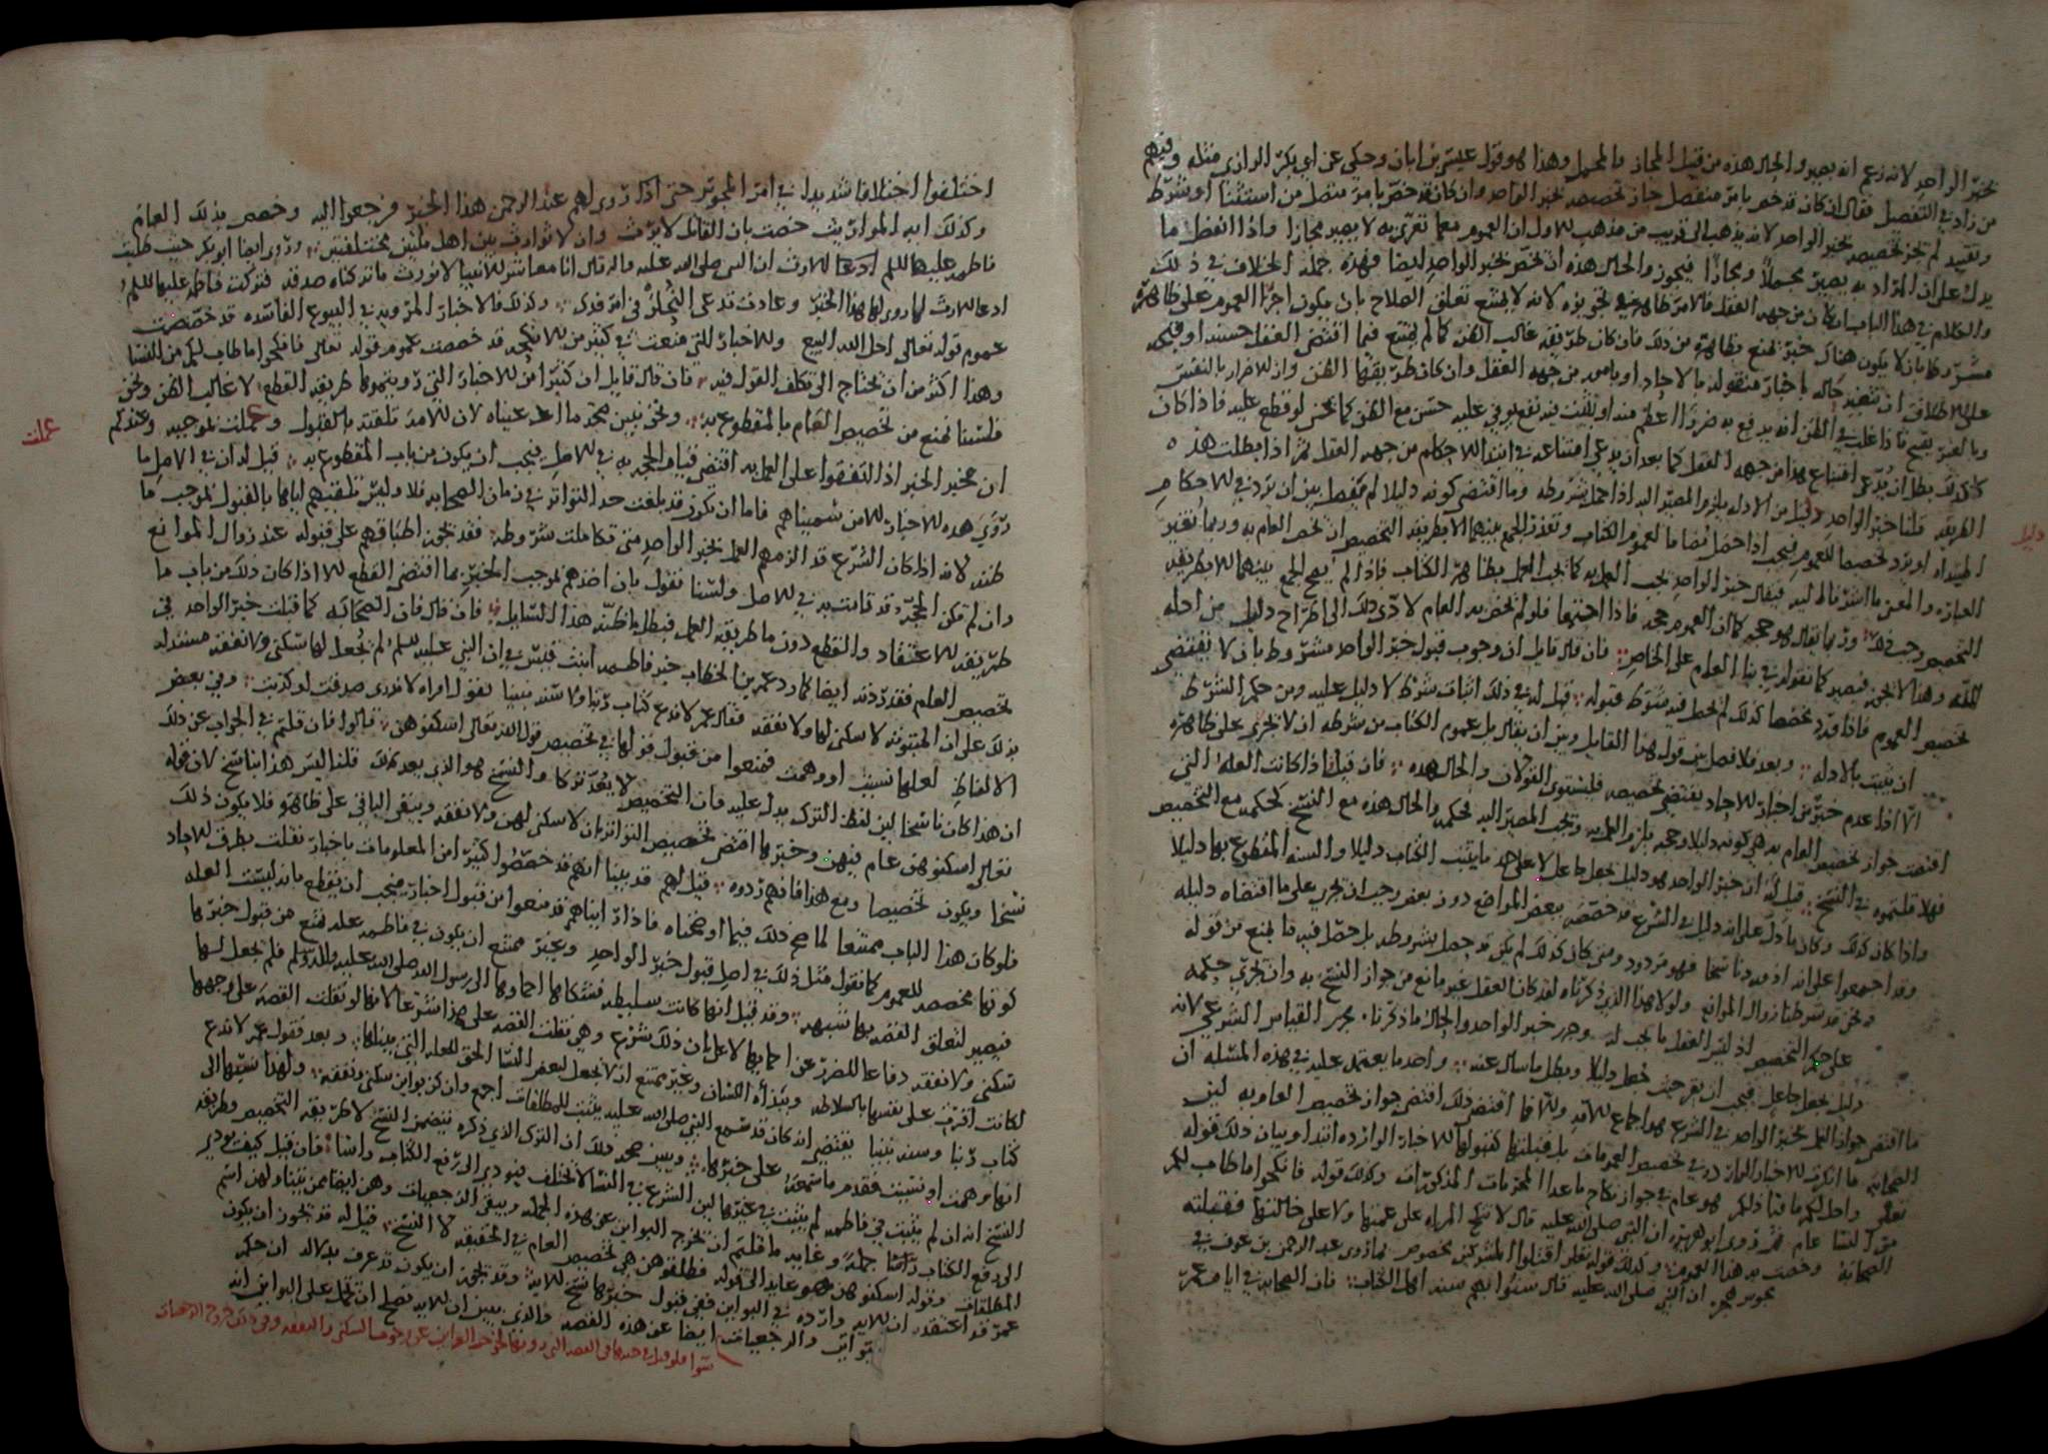 بخبر الواحد لانه زعم انه يصير والحال هذه من قبيل المجاز والمجمل وهذا هو قول عيسى بن ابان وحكي عن ابي بكر الرازي مثله وفيهم
من زاد في التفصيل فقال ان كان قد خص بامر منفصل جاز تخصيصه بخبر الواحد وان كان قد خص بامر متصل من استثنا او شرط
وتقييد لم يجز تخصيصه بخبر الواحد لانه يذهب الى قريب من مذهب الاول ان العموم معما تقترن به لا يصير مجازا واذا انفصل ما
يدل على ان المراد به يصير مجملا ومجازا فيجوز والحال هذه ان يخص بخبر الواحد ايضا فهذه جملة الخلاف في ذلك
والكلام في هذا الباب ان كان من جهه العقل فالامر ظاهر في تجويزه لانه لا يمتنع تعلق الصلاح بان يكون اجرا العموم على ظاهره
مشروطا بان لا يكون هناك خبر يمنع بظاهره من ذلك فان كان طريقه غالب الظن كما لم يمتنع فيما اقتضى العقل حسنه او قبحه
على الاطلاق ان يتغير حاله باخبار منقوله بالاحاد او بامور من جهه العقل وان كان طريقها الظن وان الاضرار بالنفس
وبالغير يقبح فاذا غلب في الظن انه يدفع به ضررا اعظم منه او يثبت فيه نفع يوفي عليه حسن مع الظن كما يحسن لو قطع عليه فاذا كان
كذلك بطل ان يدعى امتناع هذا من جهه العقل كما بعد ان يدعي امتناعه في ابتدا الاحكام من جهه العقل ثم اذا بطلت هذه
الطريقه قلنا خبر الواحد دليل من الادله يلزم المصير اليه اذا حصل شروطه وما اقتضى كونه دليلا لم يفصل بين ان يرد في الاحكام
المبتداه او يرد تخصيصا للعموم فيجب اذا حصل مضاما لعموم الكتاب وتعذر الجمع بينهما الا بطريقه التخصيص ان يخص العام به وربما تغير
العباره والمعنى ما اشرنا اليه فيقال خبر الواحد يجب العمل به كما يجب العمل بظاهر الكتاب فاذا لم يصح الجمع بينهما الا بطريقه
التخصيص وجب ذلك وربما يقال هو حجه كما ان العموم حجه فاذا اجتمعا فلو لم يخص به العام لادى ذلك الى اطراح دليل من ادله
الله وهذا لا يجوز فيصير كما نقوله في بنا العام على الخاص فان قال قايل ان وجوب قبول خبر الواحد مشروط بان لا يقتضي
تخصيص العموم فاذا ورد مخصصا كذلك لم يحصل فيه شروط قبوله قيل له في ذلك اثبات شرط لا دليل عليه ومن حكم الشرط
ان يثبت بالادله وبعد فلا فصل بين قول هذا القايل وبين ان يقال بل عموم الكتاب من شرطه ان لا يجري على ظاهره
الا اذا عدم خبر من اخبار الاحاد يقتضي تخصيصه فليستوي القولان والحال هذه فان قيل اذا كانت العله التي
اقتضت جواز تخصيص العام به هي كونه دليلا وحجه يلزم العمل به ويجب المصير اليه فحكمه والحال هذه مع النسخ كحكمه مع التخصيص
فهلا قلتموه في النسخ قيل له ان خبر الواحد هو دليل بجعل جاعل لا على حد ما يثبت الكتاب دليلا والسنه المقطوع بها دليلا
واذا كان كذلك وكان ما دل على انه دليل في الشرع قد خصصه ببعض المواضع دون بعض وجب ان يجري على ما اقتضاه دليله
وقد اجمعوا على انه اذ ورد ناسخا فهو مردود ومتى كان كذلك لم يكن قد حصل بشروطه بل حصل فيه ما يمنع من قبوله
ونحن قد شرطنا زوال الموانع ولولا هذا الذي ذكرناه لقد كان العقل غير مانع من جواز النسخ به وان يجري حكمه
على حكم التخصيص اذ ليس العقل ما يجب له وجرى خبر الواحد والحال ما ذكرنا مجرى القياس الشرعي لانه
دليل بجعل جاعل فيجب ان يقر حيث جعل دليلا وبطل ما سال عنه واحد ما يعتمد عليه في هذه المسئله ان
ما اقتضى جواز العمل بخبر الواحد في الشرع هو اجماع الامه ولان ما اقتضى ذلك اقتضى جواز تخصيص العام به لان
الصحابه ما انكرت الاخبار الوارده في تخصيص العمومات بل قبلتها كقبولها للاخبار الوارده ابتدا وبيان ذلك قوله
تعالى واحل لكم ما ورا ذلكم هو عام في جواز نكاح ما عدا المحرمات المذكورات وكذلك قوله فانكحوا ما طاب لكم
من النسا عام ثم روى ابو هريره ان النبي صلى الله عليه قال لا تنكح المراه على عمتها ولا على خالتها فقبلته
الصحابه وخصت به هذا العموم وكذلك قوله تعالى اقتلوا المشركين مخصوص بما روى عبد الرحمن بن عوف في
مجوس هجر ان النبي صلى الله عليه قال سنوا بهم سنه اهل الكتاب فان الصحابه في ايام عمر
دليل
اختلفوا اختلافا شديدا في امر المجوس حتى اذا روى لهم عبد الرحمن هذا الخبر فرجعوا اليه وخصص بذلك العام
وكذلك ايه المواريث خصت بان القاتل لا يرث وان لا توارث بين اهل ملتين مختلفتين وروى ايضا ابو بكر حيث طلبت
فاطمه عليها السلم ادعا الارث ان النبي صلى الله عليه واله قال انا معاشر الانبيا لا نورث ما تركناه صدقه فتركت فاطمه عليها السلم
ادعا الارث لما روى لها هذا الخبر وعادت تدعي النحله في امر فدك وكذلك فالاخبار المرويه في البيوع الفاسده قد خصصت
عموم قوله تعالى احل الله البيع والاخبار التي منعت في كثير من الانكحه قد خصصت عموم قوله تعالى فانكحوا ما طاب لكم من النسا
وهذا اكثر من ان يحتاج الى تكلف القول فيه فان قال قايل ان كثيرا من الاخبار التي رويتموها طريقه القطع لا غالب الظن ونحن
فلسنا نمنع من تخصيص العام بالمقطوع به ونحن نبين صحه ما ادعيناه لان الامه تلقته بالقبول وعملت بموجبه وعندكم
ان مخبر الخبر اذا اتفقوا على العمل به اقتضى قيام الحجه به في الاصل فيجب ان يكون من باب المقطوع به قيل له ان في الاصل ما
روى هذه الاخبار الا من سميناهم فاما ان يكون قد بلغت حد التواتر في زمان الصحابه فلا وليس تلقيهم اياها بالقبول بموجب ما
ظنه لانه اذا كان الشرع قد الزمهم العمل بخبر الواحد متى تكاملت شروطه فقد يجوز اطباقهم على قبوله عند زوال الموانع
وان لم تكن الحجه قد قامت به في الاصل ولسنا نقول بان اخذهم بموجب الخبر بها اقتضى القطع الا اذا كان ذلك من باب ما
طريقه الاعتقاد والقطع دون ما طريقه العمل فبطل ما ظنه هذا السايل فان قال فان الصحابه كما قبلت خبر الواحد في
تخصيص العام فقد ردته ايضا كما رد عمر بن الخطاب خبر فاطمه ابنت قيس في ان النبي عليه السلم لم يجعل لها سكنى ولا نفقه مستدله
بذلك على ان المبتوته لا سكنى لها ولا نفقه فقال عمر لا ندع كتاب ربنا ولا سنه نبينا بقول امراه لا ندري صدقت ام كذبت وفي بعض
الالفاظ لعلها نسيت او وهمت فمنعوا من قبول قولها في تخصيص قول الله تعالى اسكنوهن قالوا فان قلتم في الجواب عن ذلك
ان هذا كان ناسخا لان لفظ الترك يدل عليه فان التخصيص لا يعد تركا والنسخ هو الذي يعد كذلك قلنا ليس هذا بناسخ لان قوله
تعالى اسكنوهن عام فيهن وخبرها اقتضى تخصيص البواين بان لا سكنى لهن ولا نفقه ويبقى الباقي على ظاهره فلا يكون ذلك
نسخا ويكون تخصيصا ومع هذا فانهم ردوه قيل لهم قد بينا انهم قد خصصوا كثيرا من المعلومات باخبار نقلت بطرق الاحاد
فلو كان هذا الباب ممتنعا لما صح ذلك فيما اوضحناه فاذا رايناهم قد منعوا من قبول اخبار فيجب ان يقطع بانه ليست العله
كونها مخصصه للعموم كما نقول مثل ذلك في اصل قبول خبر الواحد وغير ممتنع ان يكون في فاطمه عله تمنع من قبول خبرها
فيصير لتعلق القصه بها شبهه وقد قيل انها كانت سليطه فشكاها احماوها الى رسول الله صلى الله عليه واله وسلم فلم يجعل لها
سكنى ولا نفقه دفاعا للضرر عن احمايها لا على ان ذلك شرع وهي نقلت القصه على هذا شرعا لانها لو نقلت القصه على وجهها
لكانت اقرت على نفسها بالسلاطه وبذاه اللسان وغير ممتنع ان لا يجعل لبعض النسا الحق للعله التي بيناها وبعد فقول عمر لا ندع
كتاب ربنا وسنه نبينا يقتضي انه كان قد سمع النبي صلى الله عليه يثبت للمطلقات اجمع وان كن بواين سكنى ونفقه ولهذا نسبها الى
انها وهمت او نسيت فقدم ما سمعه على خبرها ويبين صحه ذلك ان الترك الذي ذكره يتضمن النسخ لا طريقه التخصيص وطريقه
النسخ انه ان لم يثبت في فاطمه لم يثبت في غيرها لان الشرع في النسا لا يختلف فيودي الى رفع الكتاب راسا فان قيل كيف يودي
الى رفع الكتاب راسا جمله وغايه ما فيه ان يخرج البواين عن هذه الجمله ويبقى الرجعيات وهن ايضا ممن يتناولهن اسم
المطلقات وقوله اسكنوهن هو عايد الى قوله فطلقوهن هي تخصيص العام في الحقيقه لا النسخ قيل له قد يجوز ان يكون
عمر قد اعتقد ان الايه وارده في البواين ففي قبول خبرها نسخ للايه وقد يجوز ان يكون قد عرف بدلاله ان حكم
البواين والرجعيات ايضا عن هذه القصه والذي يبين ان الايه تصلح ان تحمل على البواين انه
عملت